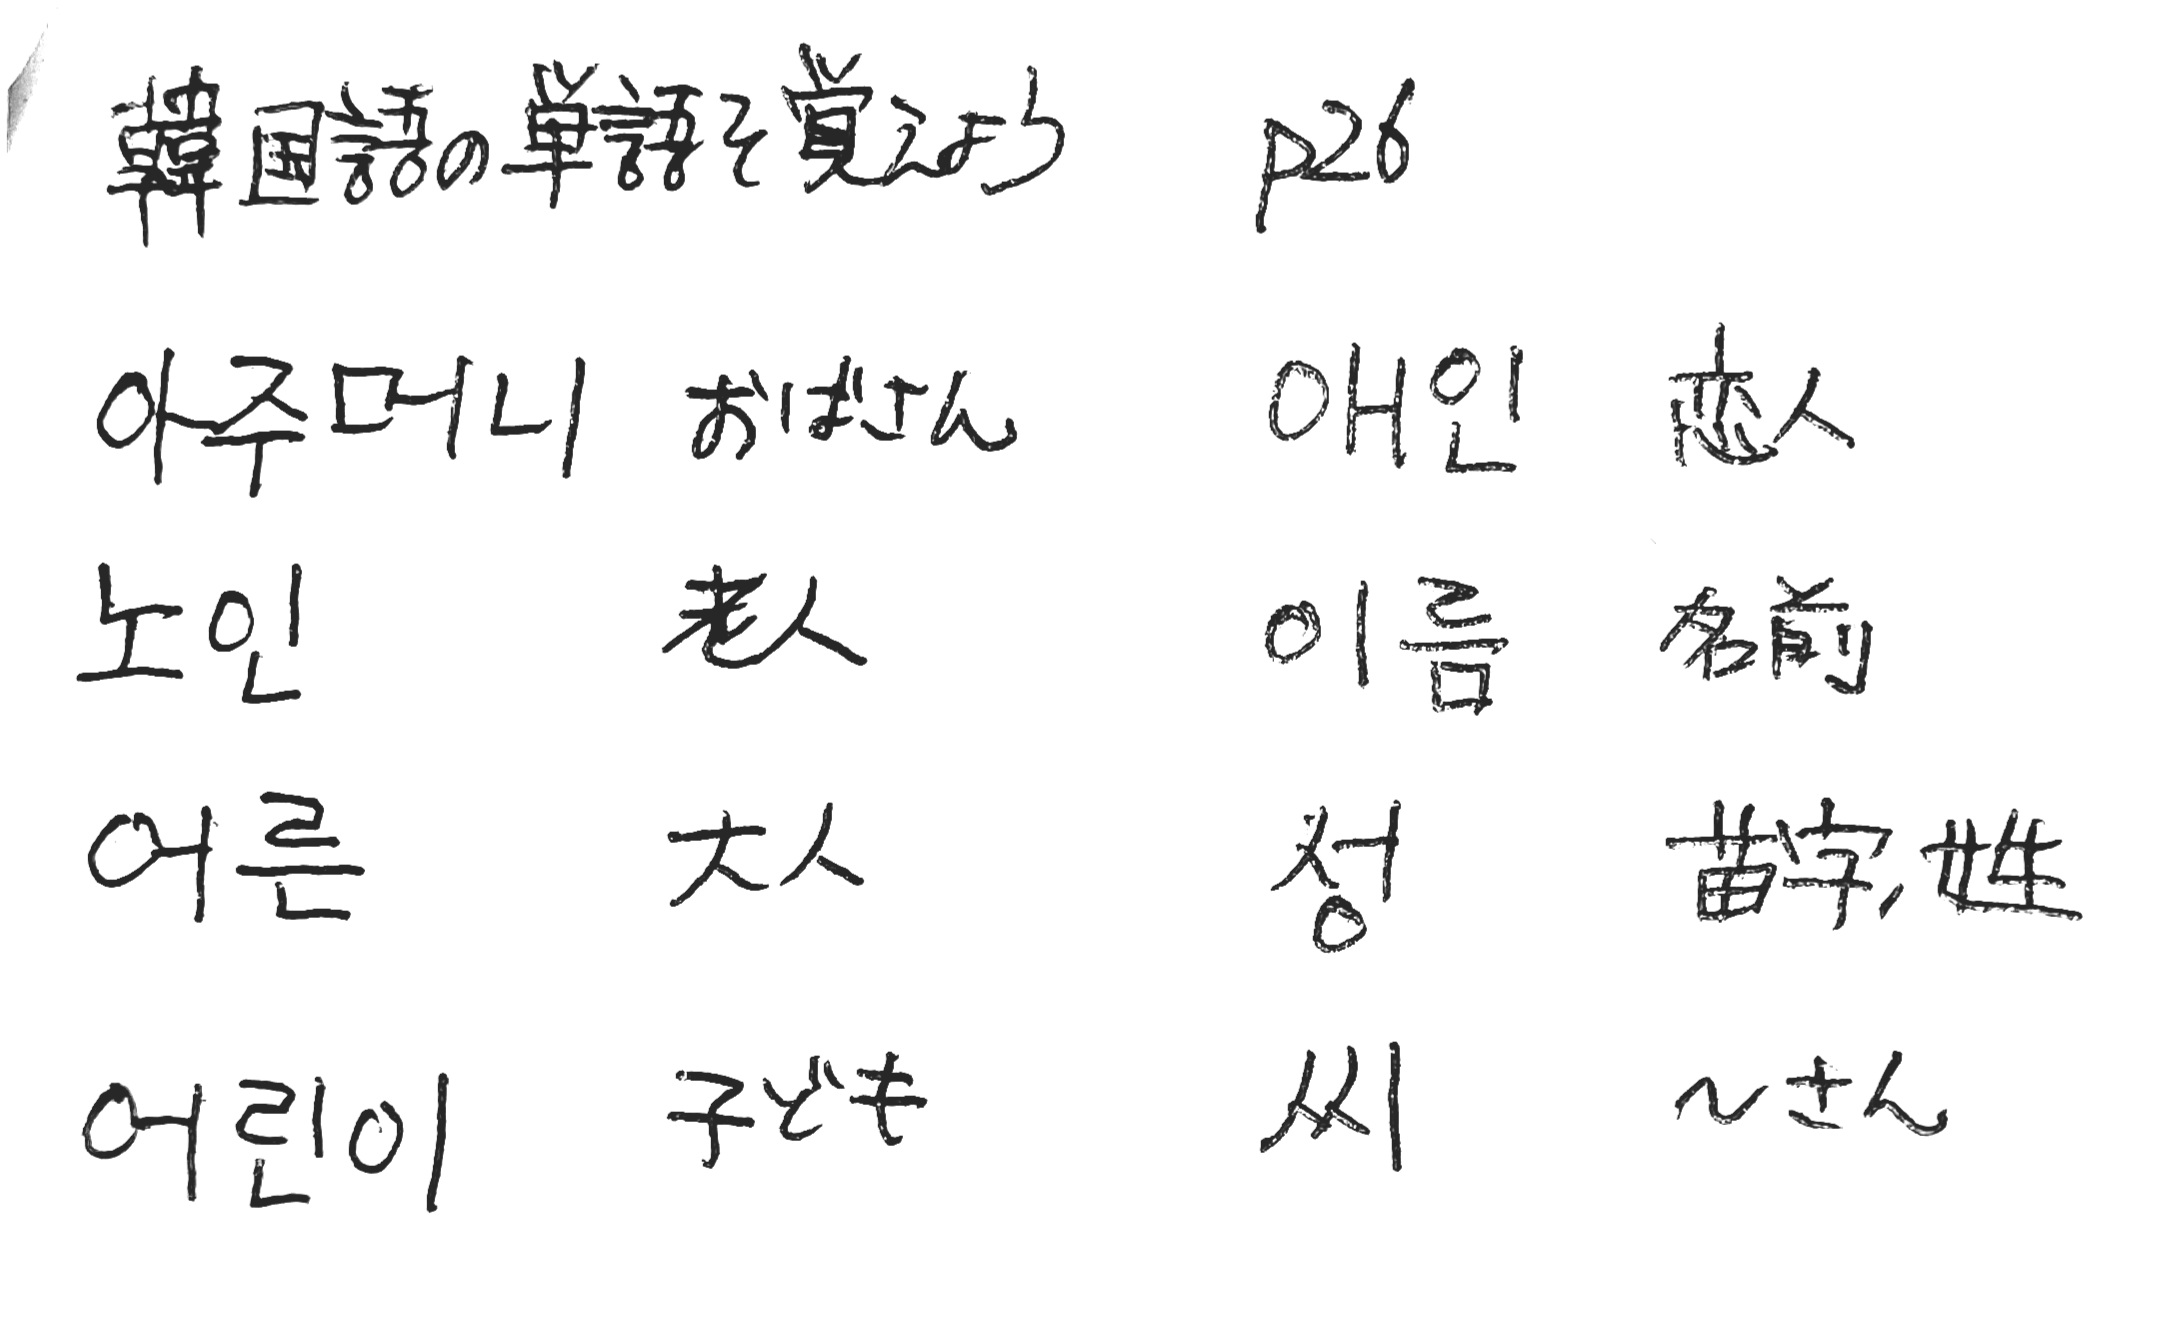 韓国語の単語を覚えよう p26
아주머니 おばさん 애인 恋人
노인 老人 이름 名前
어른 大人 성 苗字,姓
어린이 子ども 씨 ~さん